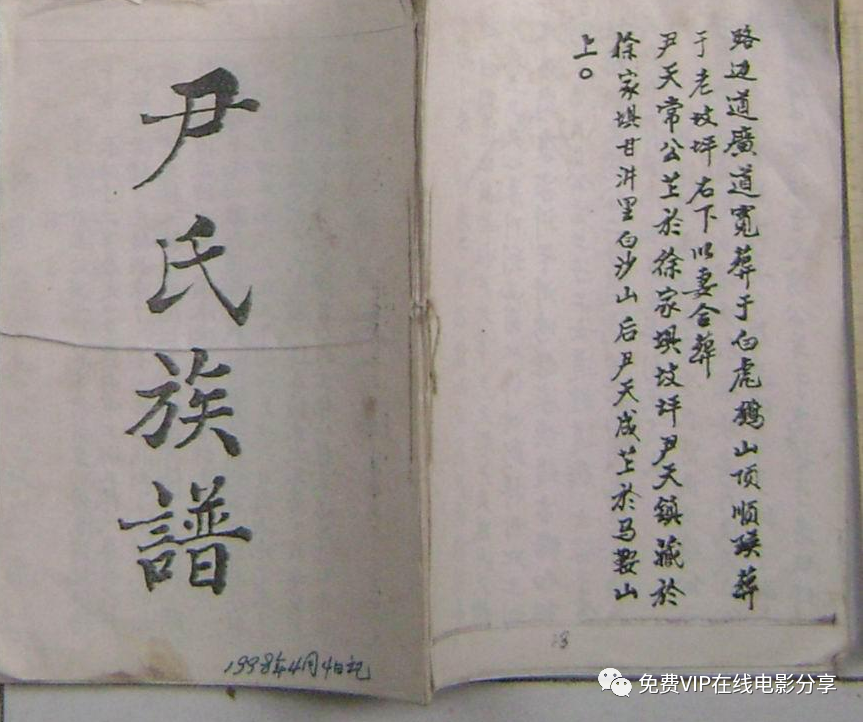 尹氏族譜
1998年4月4日记
路边道廣道寬葬于白虎鹅山顶顺瑛葬
于老坡坪右下以妻合葬
尹天常公𦵏於徐家垻坡坪尹天鎮藏於
徐家垻甘汫里白沙山后尹天成𦵏於马鞍山
上。
免费VIP在线电影分享